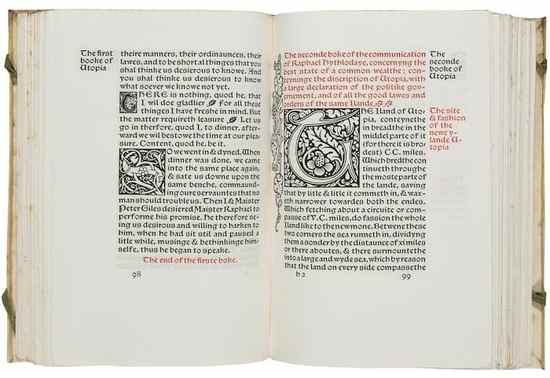 The first
booke of
Utopia
theire manners, their ordinaunces, their
lawes, and to be short al things that you
shal thinke us desierous to knowe. And
you shal thinke us desierous to know what
soever we knowe not yet.
THERE is nothing, quod he, that
I wil doe gladlier for all these
things I have fresh e in mind. But
the matter requireth leasure. Let us
go in therfore, quod I, to dinner, after-
ward we wil bestowe the time at our plea-
sure. Content, quod he, be it.
SO we went in & dyned. When
dinner was done, we came
into the same place again,
& sate us downe upon the
same benche, commaund-
ing oure servauntes that no
man should trouble us. Then I & Maister
Peter Giles desiered Maister Raphael to
performe his promise. He therefore see-
ing us desirous and willing to harken to
him, when he had sit still and paused a
little while, musinge & bethinkinge him-
selfe, thus he began to speake.
The end of the firste boke.
98
The seconde boke of the communication
of Raphael Hythlodaye, concernyng the
best state of a common wealthe: con-
tenynge the discription of Utopia, with
a large declaration of the politike gov-
ernment, and of all the good lawes and
orders of the same Ilande.
The
seconde
booke of
Utopia
The site
& fashion
of the
newe y-
lande U-
topia
THE Iland of Uto-
pia, conteynethe
in breadthe in the
middel parte of it
(for there it is bro-
dest) CC. miles.
Which bredthe con-
tinueth through
the moste parte of
the lande, saving
that by litle & litle it commeth in, & wax-
eth narrower towardes both the endes.
Which fetching about a circuite or com-
passe of V. C. miles, do fassion the whole
Iland like to the newe mone. Betwene these
two corners the sea runneth in, dividyng
them asonder by the distaunce of xi miles
or there aboutes, & there surmountethe in-
to a large and wyde sea, which by reason
that the land on every side compassethe
h 2
99